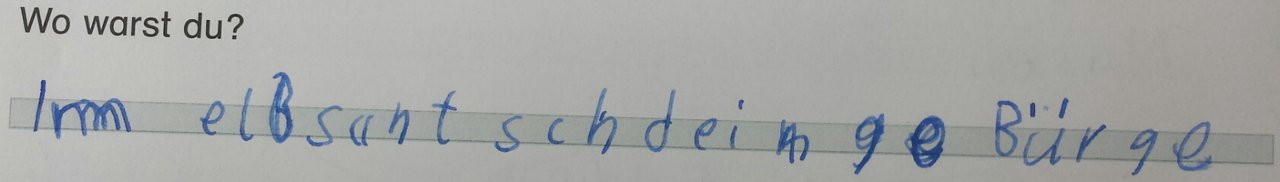 Wo warst du?
Imm elbsant schdein ge Bürge